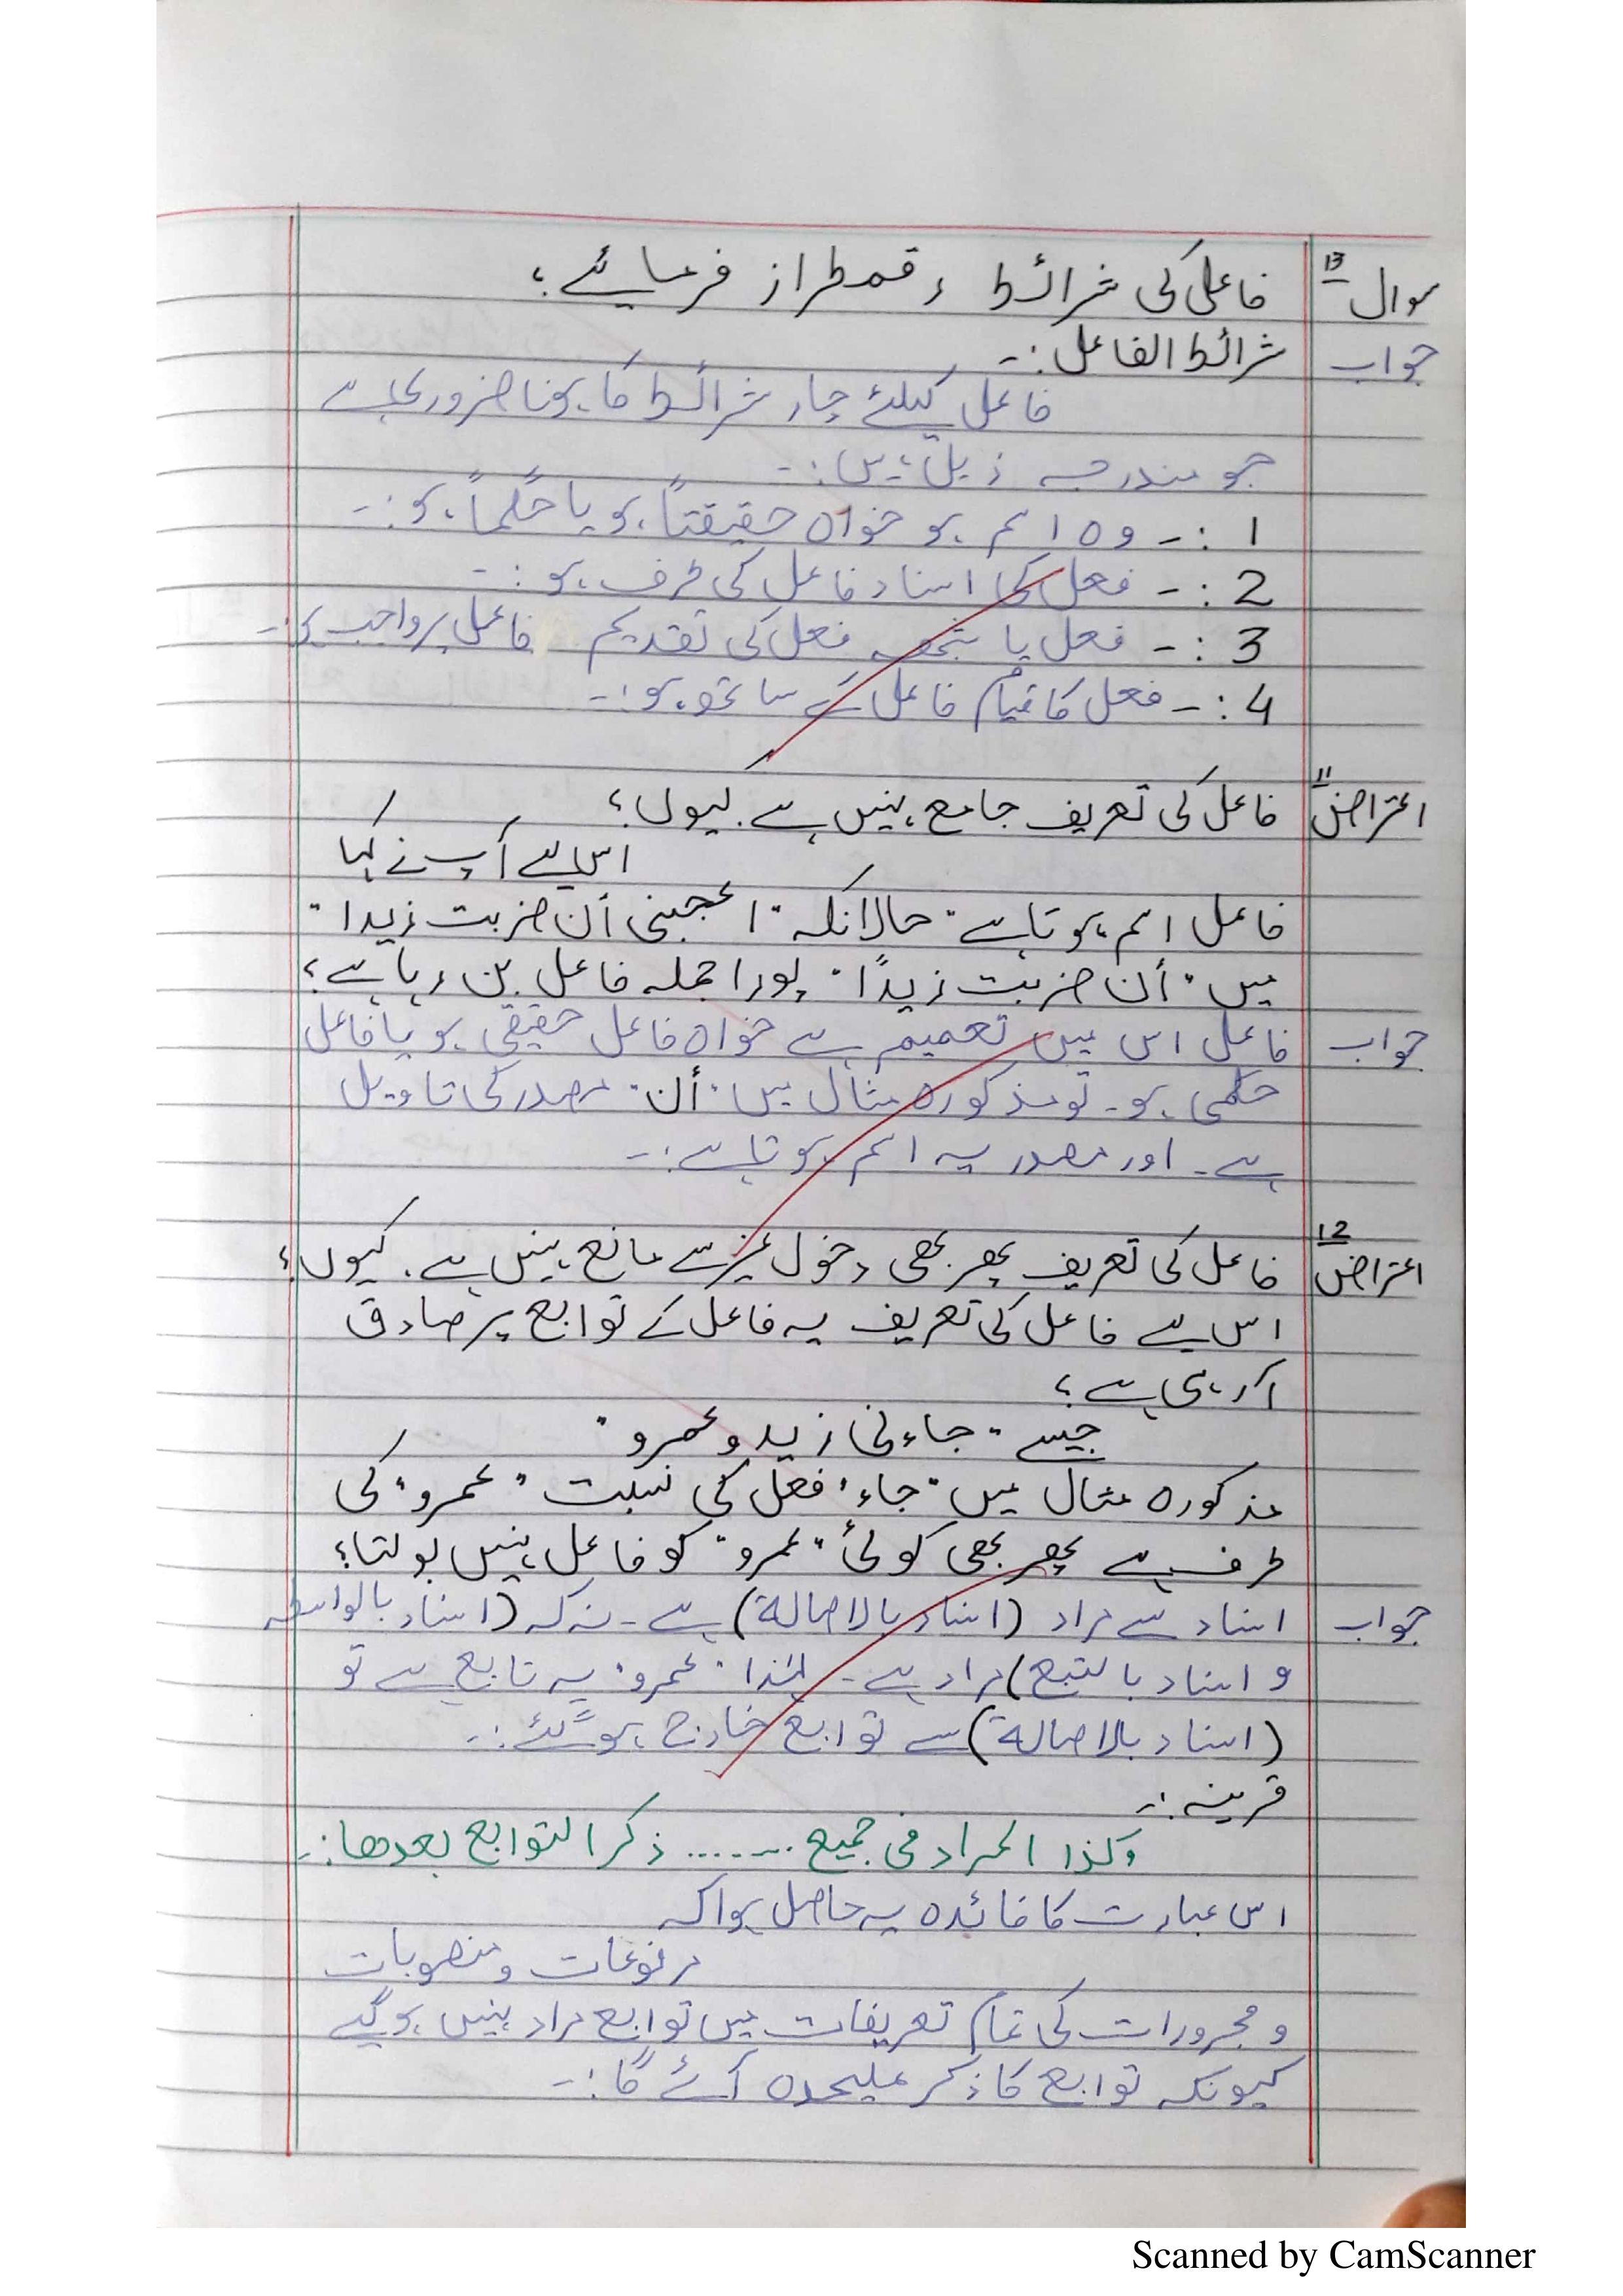 سوال 13 فاعل کی شرائط رقمطراز فرمائیے؟
جواب شرائط الفاعل:۔
فاعل کیلئے چار شرائط کا ہونا ضروری ہے
جو مندرجہ ذیل ہیں:۔
1 :۔ وہ اسم ہو خواہ حقیقتاً ہو یا حکماً ہو:۔
2 :۔ فعل کا اسناد فاعل کی طرف ہو:۔
3 :۔ فعل یا شبہ فعل کی تقدیم فاعل پر واجب ہو:۔
4 :۔ فعل کا قیام فاعل کے ساتھ ہو:۔
اعتراض 11 فاعل کی تعریف جامع نہیں ہے۔ کیوں؟
اس لیے آپ نے کہا
فاعل اسم ہوتا ہے" حالانکہ "اعجبنی أن ضربت زیدا"
میں "أن ضربت زیدًا" پورا جملہ فاعل بن رہا ہے؟
جواب فاعل اس میں تعمیم ہے خواہ فاعل حقیقی ہو یا فاعل
حکمی ہو۔ تو مذکورہ مثال میں "أن" مصدر کی تاویل
ہے۔ اور مصدر یہ اسم ہوتا ہے:۔
اعتراض 12 فاعل کی تعریف پھر بھی دخول غیر سے مانع نہیں ہے۔ کیوں؟
اس لیے فاعل کی تعریف یہ فاعل کے توابع پر صادق
آ رہی ہے؟
جیسے "جاءنی زید وعمرو"
مذکورہ مثال میں "جاء" فعل کی نسبت "عمرو" کی
طرف ہے پھر بھی کوئی "عمرو" کو فاعل نہیں بولتا؟
جواب اسناد سے مراد (اسناد بالاصالة) ہے۔ نہ کہ (اسناد بالواسطہ
و اسناد بالتبع) مراد ہے۔ لہٰذا "عمرو" یہ تابع ہے تو
(اسناد بالاصالة) سے توابع خارج ہوگئے:۔
قرینہ:۔
وکذا المراد فی جمیع ....... ذکر التوابع بعدها:۔
اس عبارت کا فائدہ یہ حاصل ہوا کہ
مرفوعات و منصوبات
و مجرورات کی تمام تعریفات میں توابع مراد نہیں ہوگے
کیونکہ توابع کا ذکر علیحدہ آئے گا:۔
Scanned by CamScanner